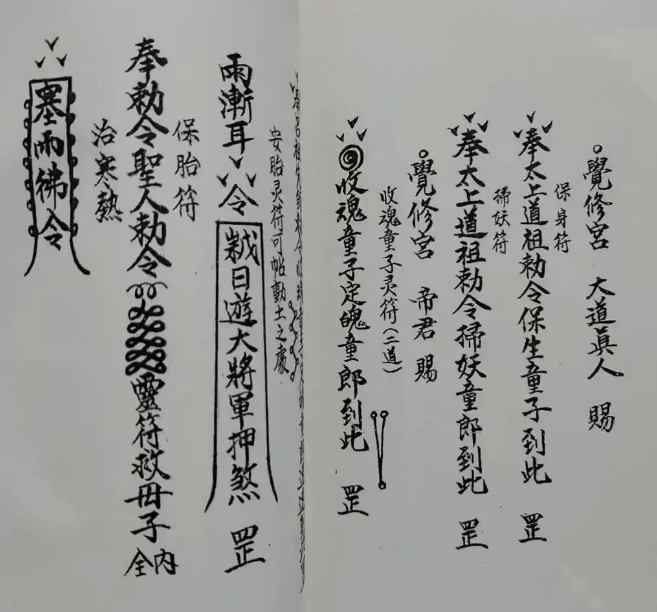 覺修宮 大道眞人 賜
保身符
奉太上道祖勅令保生童子到此 罡
掃妖符
奉太上道祖勅令掃妖童郎到此 罡
覺修宮 帝君 賜
收魂童子灵符(二道)
收魂童子定魄童郎到此 罡
安胎灵符可帖動土之處
雨漸耳 令 日遊大將軍押煞 罡
保胎符
奉勅令聖人勅令 靈符救毌子內全
治寒熱
塞雨彿令